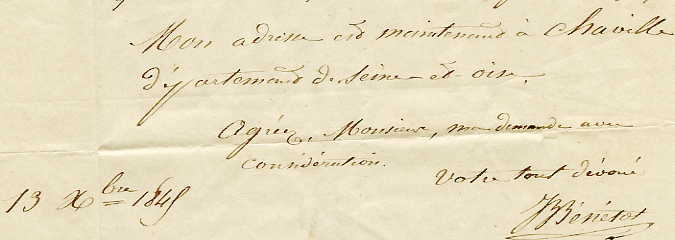 Mon adresse est maintenant à Chaville
département de Seine et oise.
Agréez, Monsieur, ma demande avec
considération.
Votre tout dévoué
13 Xbre 1845